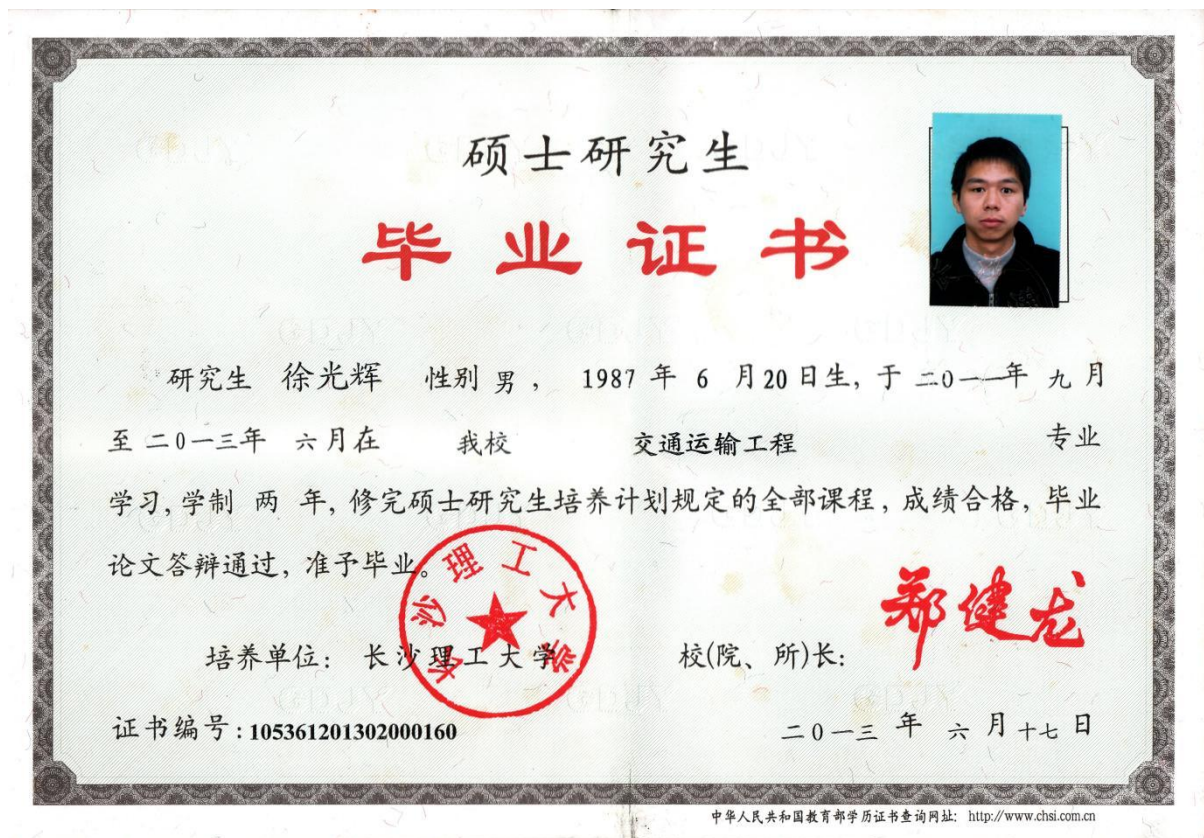 硕士研究生
毕业证书
研究生 徐光辉 性别 男 , 1987 年 6 月 20 日生, 于 二0一一年 九月
至 二0一三年 六月在 我校 交通运输工程 专业
学习, 学制 两 年, 修完硕士研究生培养计划规定的全部课程, 成绩合格, 毕业
论文答辩通过, 准予毕业。
长沙理工大学
郑健龙
培养单位: 长沙理工大学 校(院、所)长:
证书编号:105361201302000160 二0一三 年 六 月 十七 日
中华人民共和国教育部学历证书查询网址: http://www.chsi.com.cn